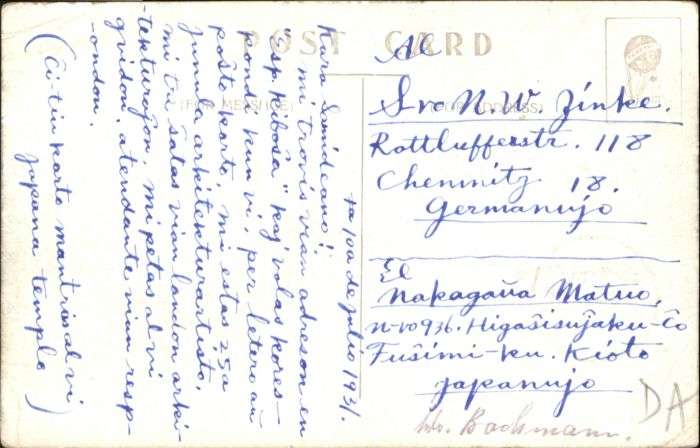 POST CARD
(FOR ADDRESS)
(FOR MESSAGE)
Al
Sro N. W. Zinke.
Rottlufferstr. 118
Chemnitz 18.
Germanujo
El
Nakagaŭa Matuo,
n-ro 936. Higaŝisuĵaku-ĉo
Fuŝimi-ku. Kioto
Japanujo
DA
Bachmann
de julio 1931.
Kara Samideano!
mi trovis vian adreson en
"Esp. kiboŝa" kaj volas kores-
pondi kun vi, per letero aŭ
poŝto karto, mi estas 25a
junula arkitekturartisto,
mi tri ŝatas vian landon arki-
-tekturojon, mi petas al vi
gvidon, atendante vian resp-
-ondon.
(Ĉi-tiu karto mantras al vi
japana templo)